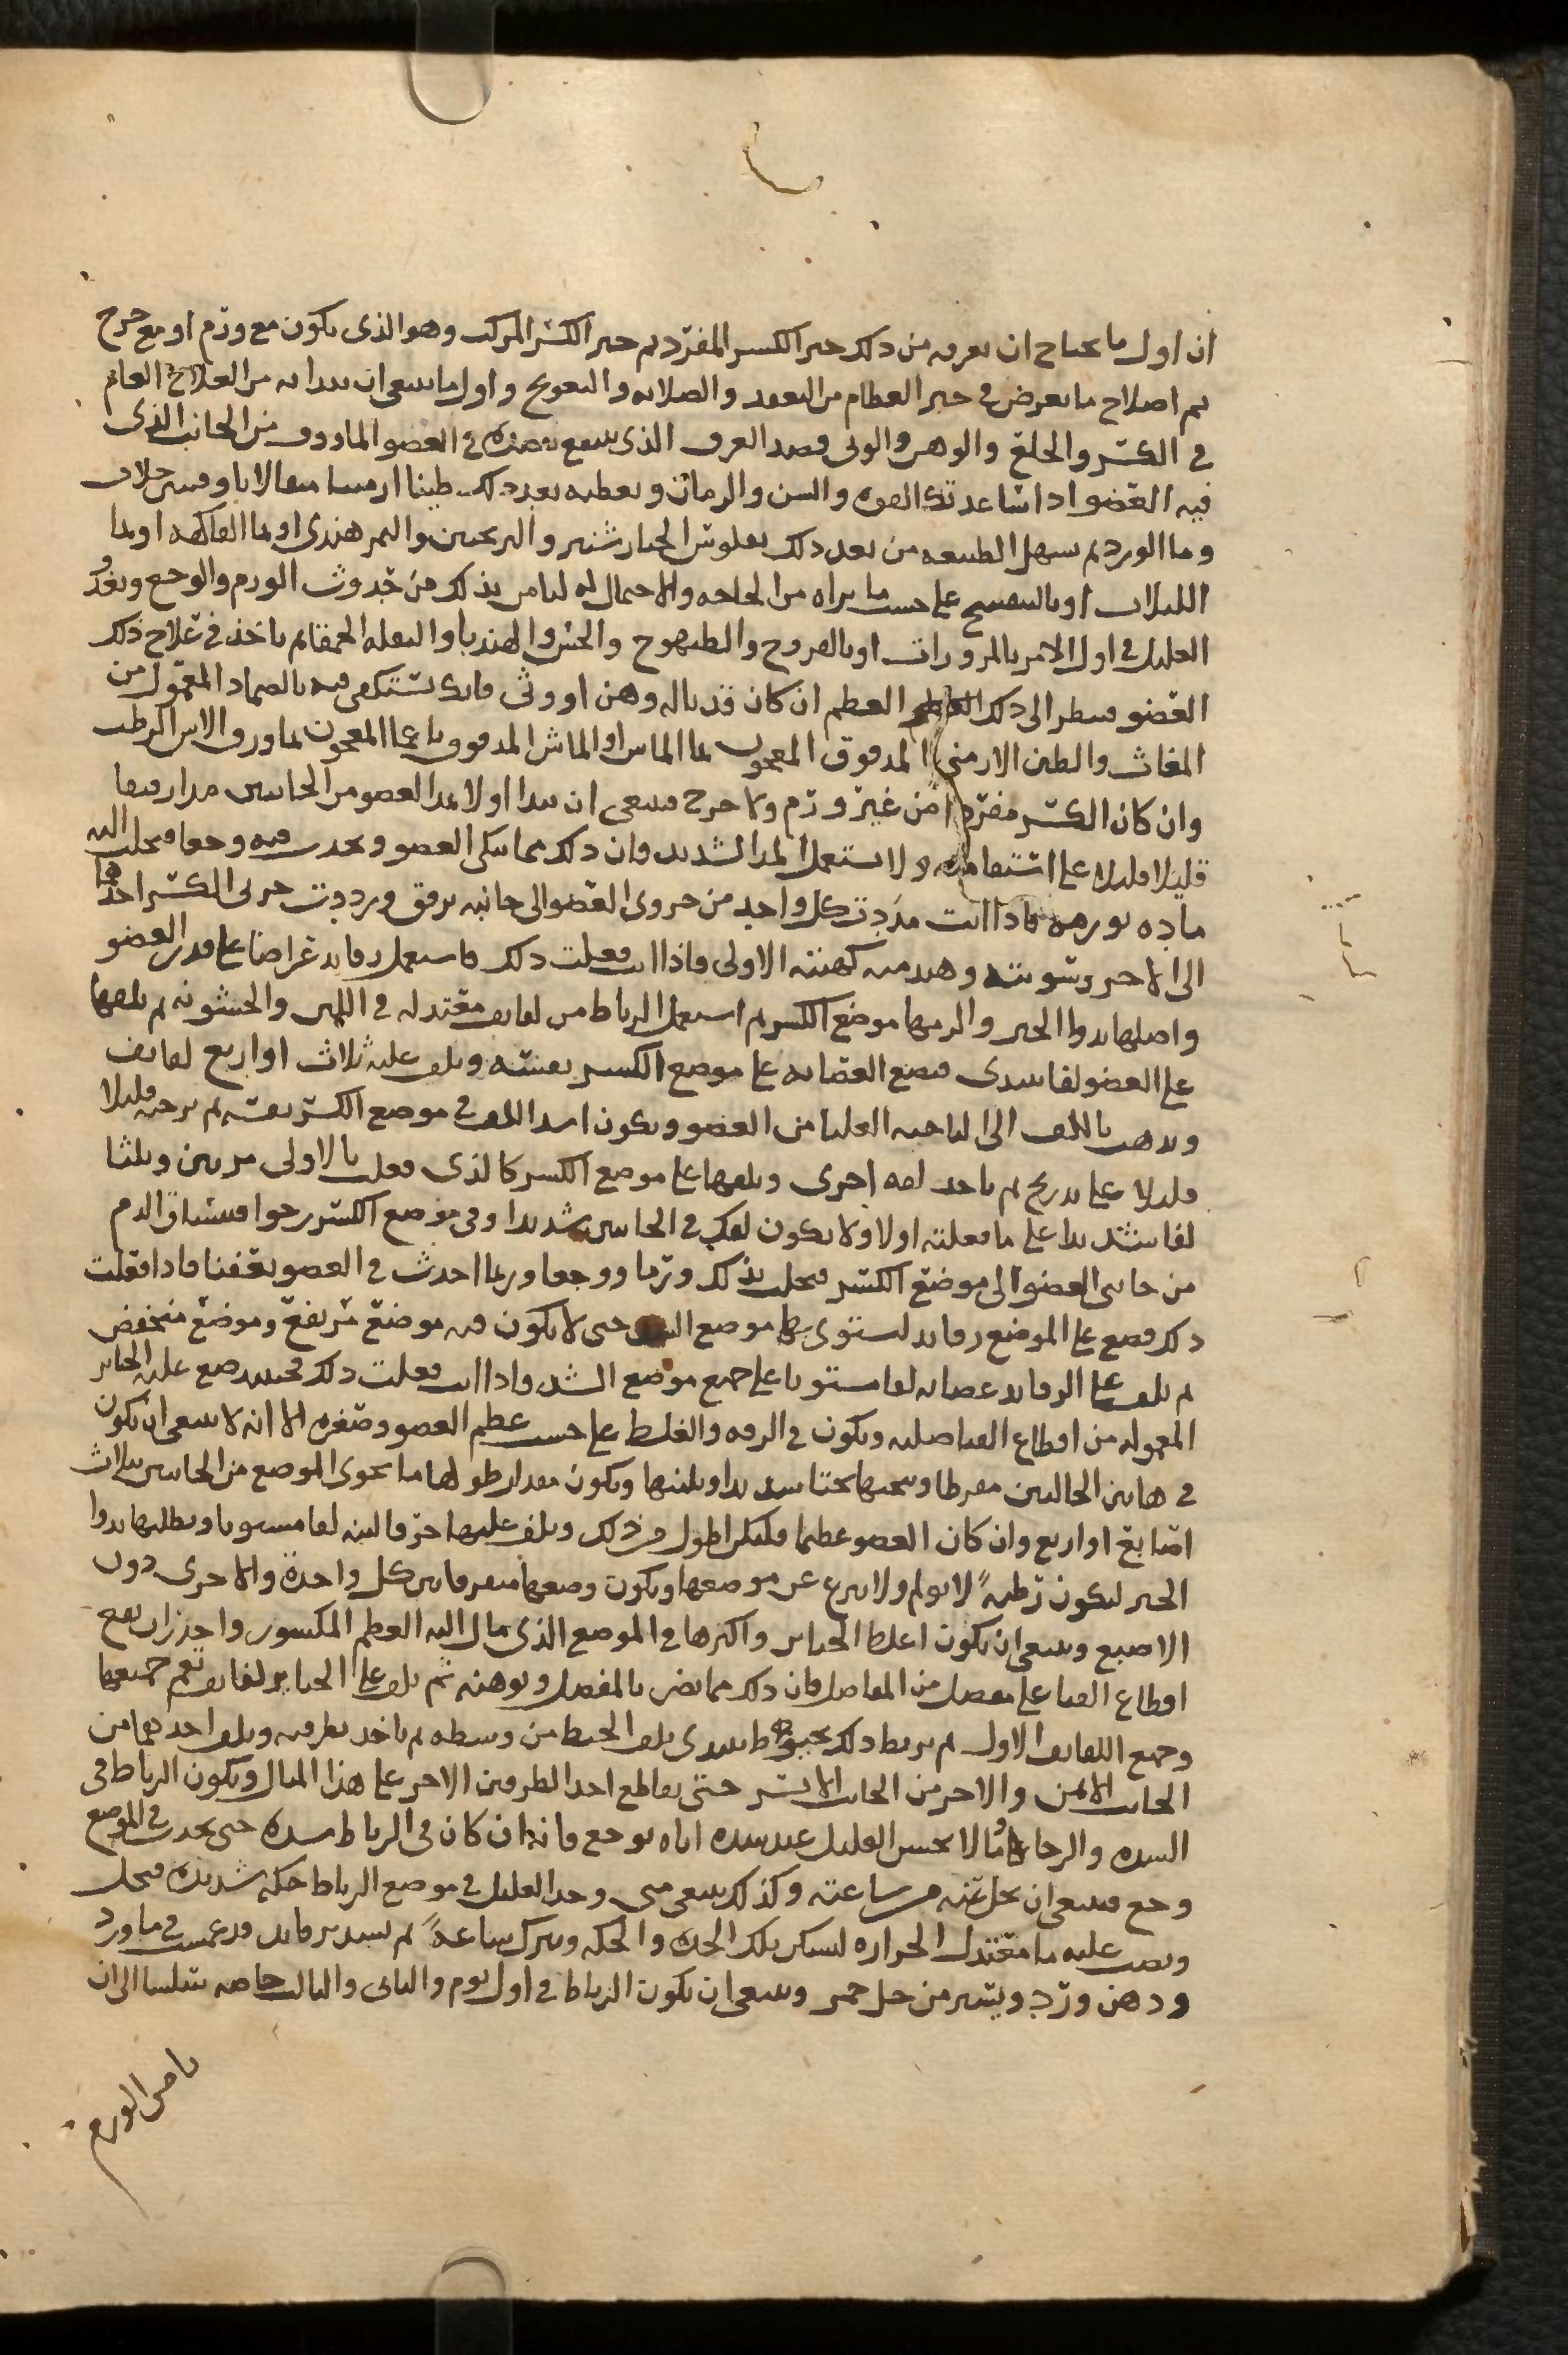 ان اول ما يحتاج ان نعرفه من ذلك جبر الكسر المفرد ثم جبر الكسر المركب وهو الذى يكون مع ورم او مع جرح
ثم اصلاح ما يعرض فى جبر العظام من التعقد والصلابه والتعويج واول ما ينبغى ان يبدا به من العلاج العام
فى الكسر والخلع والوهن والوثى فصد العرق الذى ينتفع بفصده فى العضو الماووف من الجانب الذى
فيه العضو اذا ساعدتك القوه والسن والزمان وتعطيه بعد ذلك طينا ارمنيا مثقالا باوقيتين جلاب
وما الورد ثم تسهل الطبيعه من بعد ذلك بفلوس الخيار شنبر والترنجبين والتمر هندى او بما الفاكهه او بما
اللبلاب او بالبنفسج على حسب ما تراه من الحاجه والاحتمال له ليامن بذلك من حدوث الورم والوجع وتغذو
العليل فى اول الامر بالمزورات او بالفروج والطيهوج والخس والهندبا والبقله الحمقا ثم تاخذ فى علاج ذلك
العضو فتنظر الى ذلك العظم ان كان قد ناله وهن او وثى فانك تستكفى فيه بالضماد المعمول من
المغاث والطين الارمنى المدقوق المعجون بما الماس او الماش المدقوق ناعما المعجون بما ورق الاس الرطب
وان كان الكسر مفردا من غير ورم ولا جرح فينبغى ان تبدا اولا بمد العضو من الجانبين مدا رفيقا
قليلا قليلا على استقامه ولا تستعمل المد الشديد فان ذلك مما ينكى العضو ويحدث فيه وجعا فيجلب اليه
ماده تورمه فاذا انت مددت كل واحد من جزوى العضو الى جانبه برفق ورددت جزئى الكسر احدهما
الى الاخر وسويته وهندمته كهيئته الاولى فاذا انت فعلت ذلك فاستعمل رفايد عراضا على قدر العضو
واصلها بدوا الجبر والزمها موضع الكسر ثم استعمل الرباط من لفايف معتدله فى اللين والخشونه ثم تلفها
على العضو لفا تبتدى فتضع العصابه على موضع الكسر بعينه وتلف عليه ثلاث او اربع لفايف
وتذهب باللف الى الناحيه العليا من العضو ويكون اشد اللف فى موضع الكسر بعينه ثم ترخيه قليلا
قليلا على تدريج ثم تاخذ لفه اخرى وتلفها على موضع الكسر كالذى فعلت بالاولى مرتين وثلثا
لفا شديدا على ما فعلته اولا ولا يكون لفك فى الجانبين شديدا وفى موضع الكسر رخوا فينساق الدم
من جانبى العضو الى موضع الكسر فيجلب بذلك ورما ووجعا وربما احدث فى العضو تعفنا فاذا فعلت
ذلك فضع على الموضع رفايد لستوى بها موضع الشد حتى لا يكون فيه موضع مرتفع وموضع منخفض
ثم تلف على الرفايد عصابه لفا مستويا على جميع موضع الشد فاذا انت فعلت ذلك فحينيذ ضع عليه الجباير
المعموله من اقطاع القنا صلبه وتكون فى الرقه والغلظ على حسب عظم العضو وصغره الا انه لا ينبغى ان تكون
فى هاتين الحالتين مفرطا وتنحتها نحتا شديدا وتلينها ويكون مقدار طولها ما يحوى الموضع من الجانبين بثلاث
اصابع او اربع وان كان العضو عظيما فليكن اطول من ذلك وتلف عليها خرقا لينه لفا مستويا وتطليها بدوا
الجبر لتكون رطبه لا تولم ولا تبرح عن موضعها ويكون وضعها متفرقا بين كل واحدة والاخرى دون
الاصبع وينبغى ان يكون اغلظ الجباير واكثرها فى الموضع الذى مال اليه العظم المكسور واحذر ان تضع
اقطاع القنا على مفصل من المفاصل فان ذلك مما يضر بالمفصل ويوهنه ثم تلف على الجباير لفايف تعم جميعها
وجميع اللفايف الاول ثم تربط ذلك بخيوط تبتدى بلف الخيط من وسطه ثم تاخذ بطرفيه وتلف احدهما من
الجانب الايمن والاخر من الجانب الايسر حتى يقاطع احد الطرفين الاخر على هذا المثال ويكون الرباط فى
الشده والرخاوه ما لا يحس العليل عند شده اياه بوجع فانه ان كان فى الرباط شده حتى يحدث فى الموضع
وجع فينبغى ان تحل عنه من ساعته وكذلك ينبغى متى وجد العليل فى موضع الرباط حكه شديده فتحله
وتصب عليه ما معتدل الحراره لتسكن بذلك الحده والحكه وتترك ساعة ثم تشد برفايد قد غمست فى ماورد
ودهن ورد ويسير من خل خمر وينبغى ان يكون الرباط فى اول يوم والثانى والثالث خاصه سلسا الى ان
تامن الورم